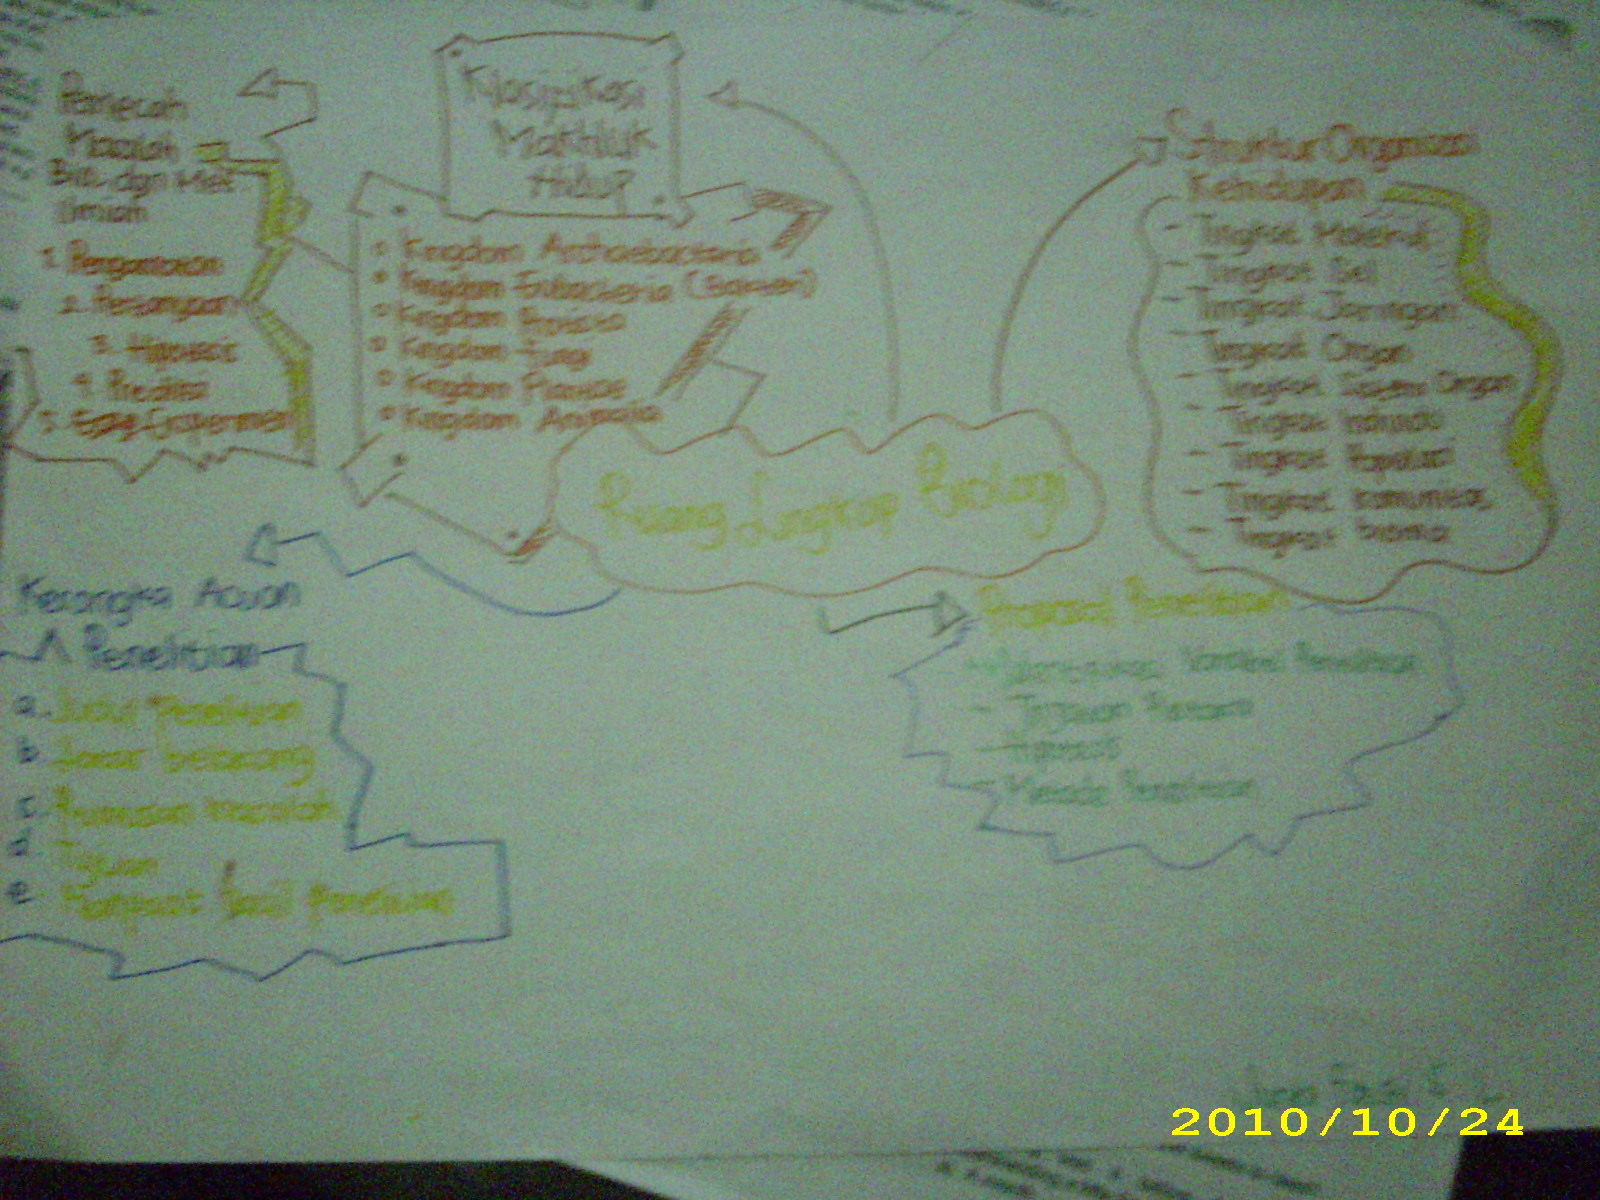 Klasifikasi
Makhluk
Hidup
Kingdom Archaebacteria
Kingdom Eubacteria (Bakteri)
Kingdom Protista
Kingdom Fungi
Kingdom Plantae
Kingdom Animalia
Masalah
Bio. dgn Met
Ilmiah
1. Pengamatan
2. Pertanyaan
3. Hipotesis
4. Prediksi
5. Eksperimen
Struktur Organisasi
Kehidupan
- Tingkat Molekul
- Tingkat Sel
- Tingkat Jaringan
- Tingkat Organ
- Tingkat Sistem Organ
- Tingkat Individu
- Tingkat Populasi
- Tingkat Komunitas
- Tingkat bioma
Ruang Lingkup Biologi
Kerangka Acuan
Penelitian
a. Judul Penelitian
b. Latar belakang
c. Rumusan masalah
d. Tujuan
e. Manfaat hasil penelitian
Proposal Penelitian
Variabel Penelitian
- Tinjauan Pustaka
- Hipotesis
- Metode Penelitian
2010/10/24